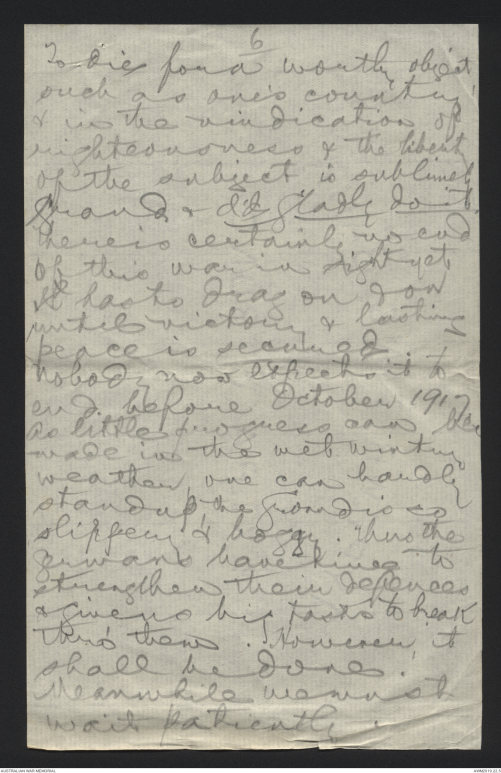 6
To die for a worthy object
such as one's country,
& in the vindication of
righteousness & the liberty
of the subject is sublimely
grand & I'd gladly do it.
There is certainly no end
of this war in sight yet
It has to drag on & on
until victory & lasting
peace is secured.
Nobody now expects it to
end before October 1917
as little progress can be
made in the wet wintry
weather, one can hardly
stand up, the ground is so
slippery & boggy. Thus the
Germans have time to
strengthen their defences
& give us big tasks to break
thro' them. However, it
shall be done.
Meanwhile we must
wait patiently.
AUSTRALIAN WAR MEMORIAL